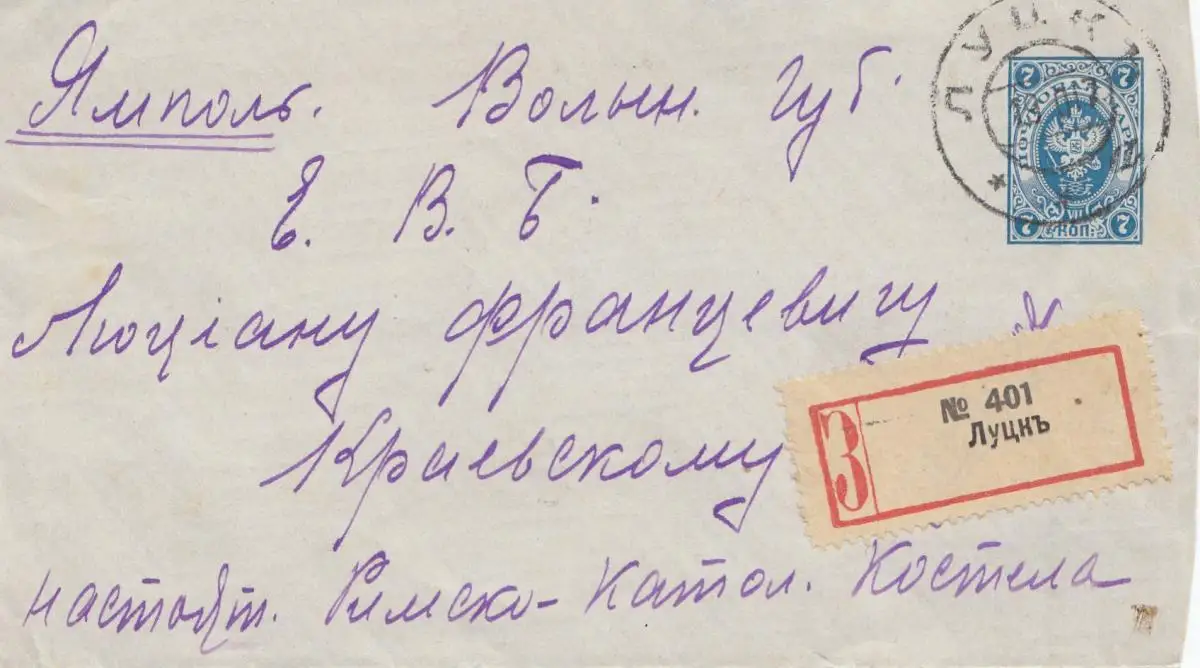 ЛУЦКЪ
Ямполь. Волын. губ.
7 7
ПОЧТОВАЯ МАРКА
7 КОП. 7
Е. В. Б.
Люціану Францевичу
Краевскому
№ 401
Луцкъ
З
настоят. Римско-Катол. Костела